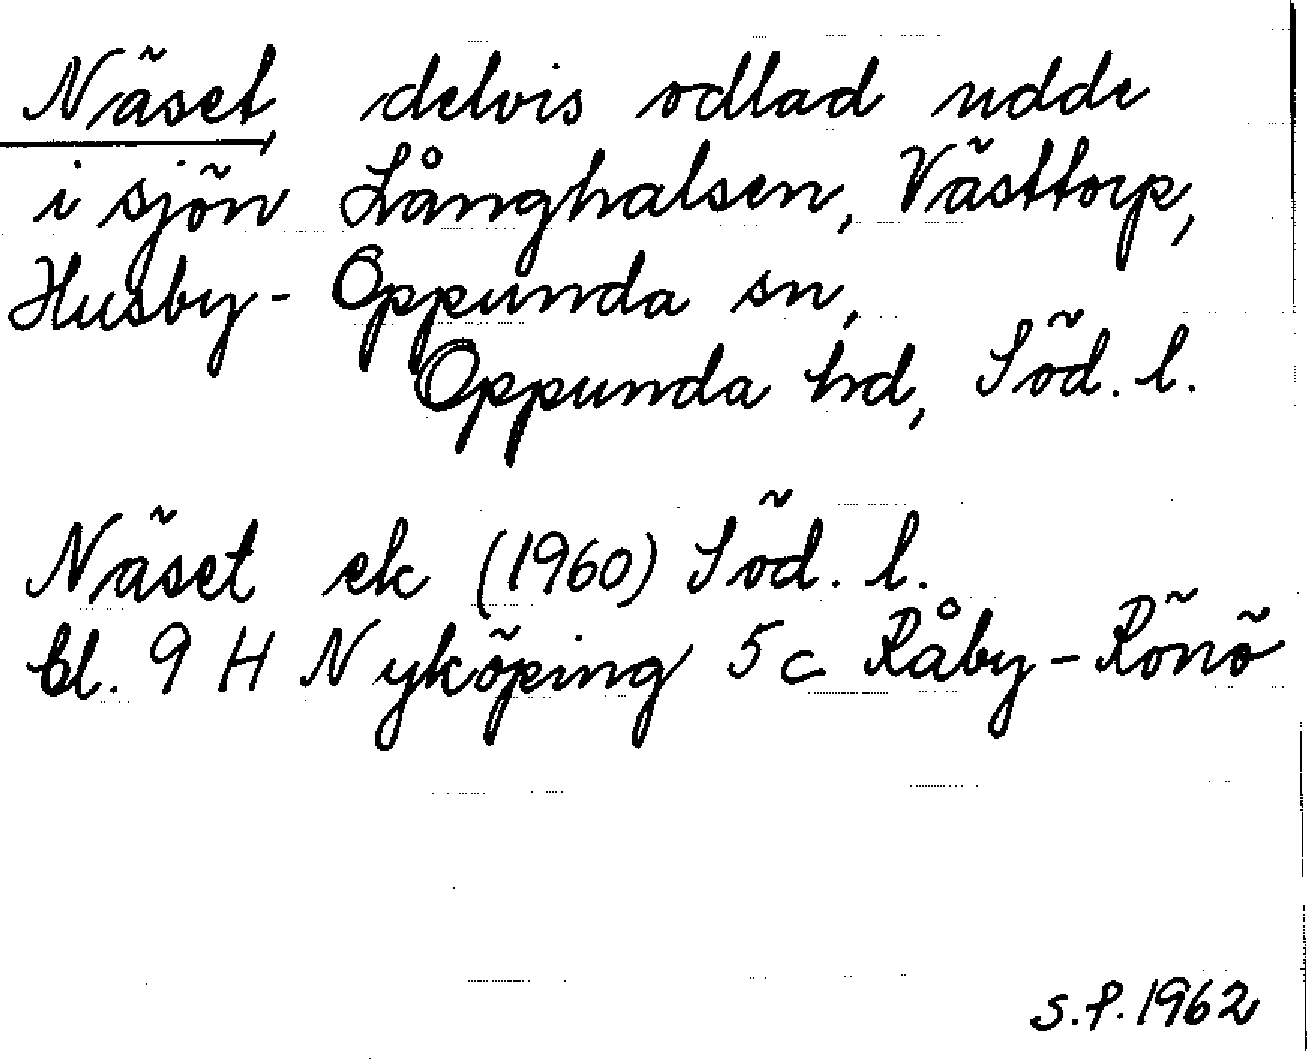 Näset, delvis odlad udde
i sjön Långhalsen, Västtorp,
Husby-Oppunda sn,
Oppunda hd, Söd. l.
Näset ek (1960) Söd. l.
bl. 9 H Nyköping 5 c Råby-Rönö
S.P. 1962